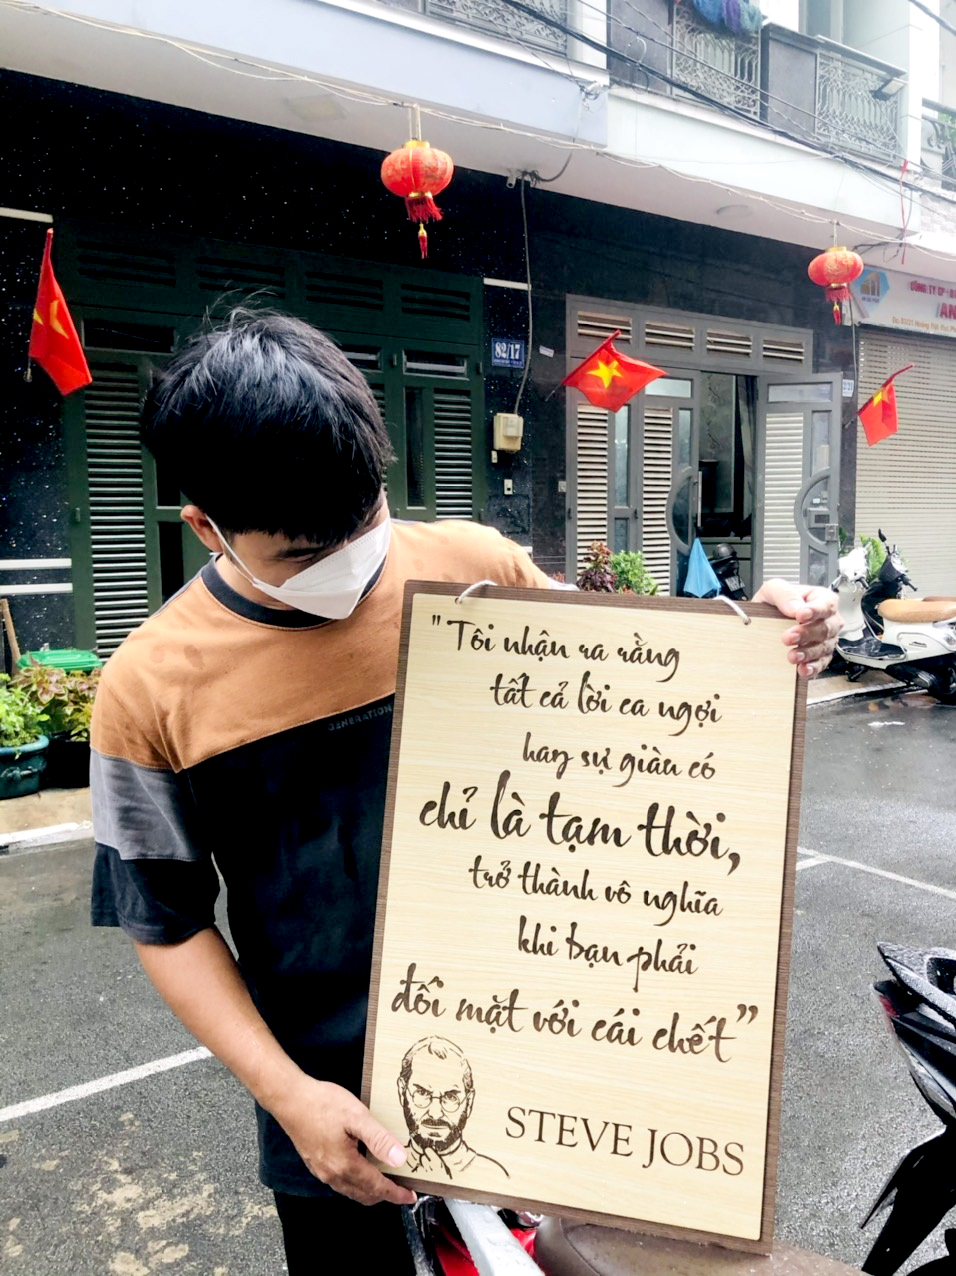 82/17
CÔNG TY CP
AN
GENERATION
"Tôi nhận ra rằng
tất cả lời ca ngợi
hay sự giàu có
chỉ là tạm thời,
trở thành vô nghĩa
khi bạn phải
đối mặt với cái chết”
STEVE JOBS